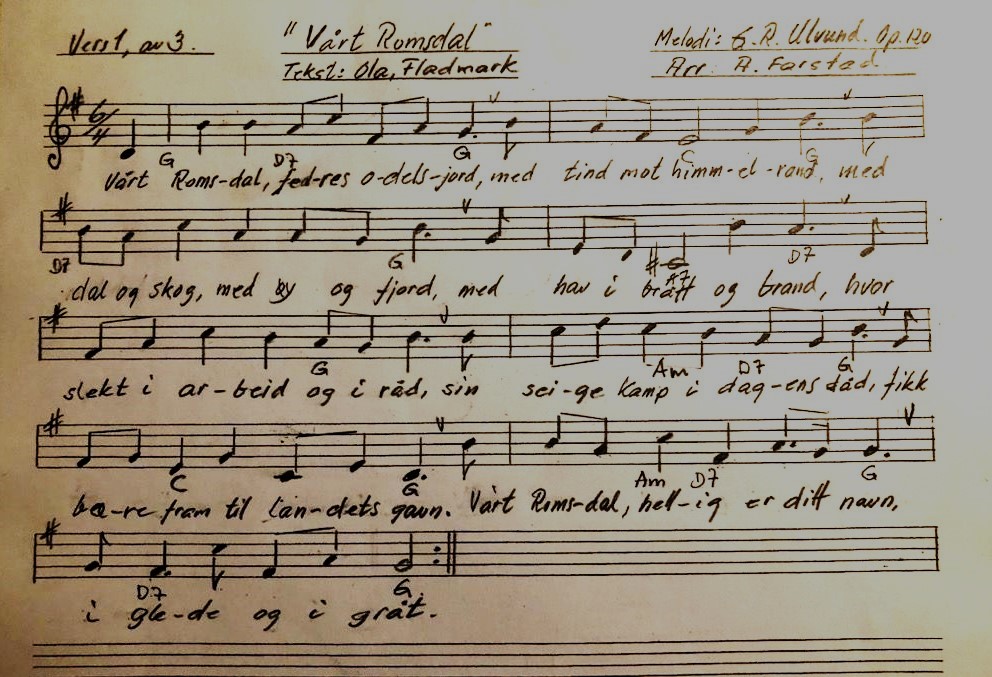 Vers 1, av 3.
"Vårt Romsdal"
Tekst: Ola, Fladmark
Melodi: G. R. Ulvund. Op. 120
Arr: A. Farstad
6/4
G D7 G C G
Vårt Roms-dal, fed-res o-dels-jord, med tind mot himm-el-rand, med
D7 G A7 D7
dal og skog, med by og fjord, med hav i brått og brand, hvor
G Am D7 G
slekt i ar-beid og i råd, sin sei-ge kamp i dag-ens dåd, fikk
C G Am D7 G
bæ-re fram til lan-dets gavn. Vårt Roms-dal, hell-ig er ditt navn,
D7 G
i gle-de og i gråt.